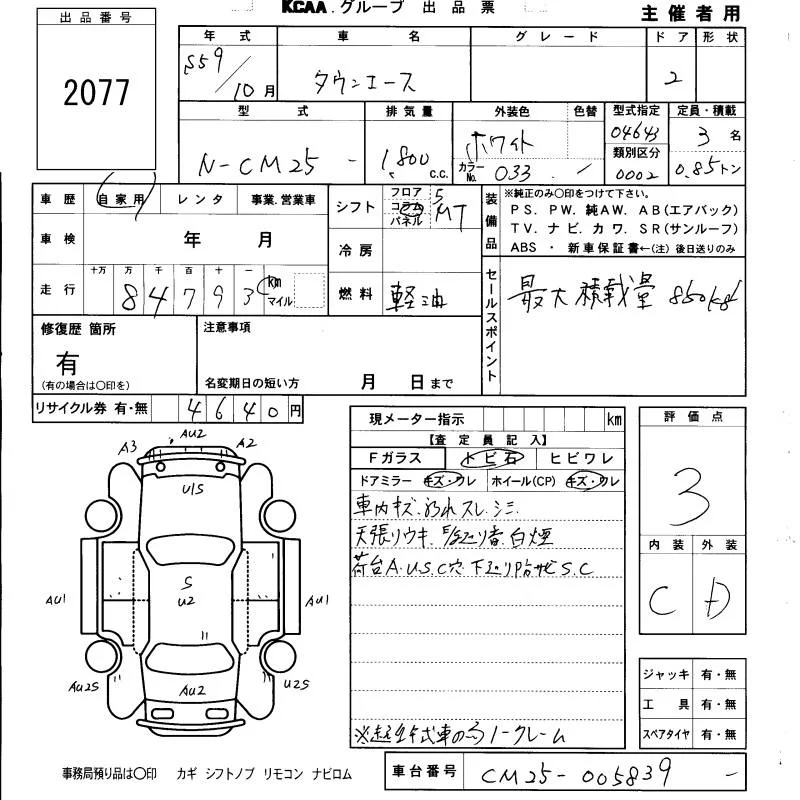 KCAA.グループ 出品票
主催者用
出品番号
2077
年式 車名 グレード ドア 形状
S59/10月 タウンエース 2
型式 排気量 外装色 色替 型式指定 定員・積載
N-CM25 - 1,800 c.c. ホワイト カラーNo. 033 / 04643 3名
類別区分
0002 0.85トン
車歴 自家用 レンタ 事業.営業車
シフト フロア コラム パネル 5 MT
装備品
※純正のみ○印をつけて下さい。
PS. PW. 純AW. AB(エアバック)
TV. ナビ. カワ. SR(サンルーフ)
ABS ・ 新車保証書←(注)後日送りのみ
車検 年 月
冷房
走行 十万 万 千 百 十 一
84793 km マイル
燃料 軽油
セールスポイント
最大積載量 850kg
修復歴 箇所
有
(有の場合は○印を)
注意事項
名変期日の短い方 月 日まで
リサイクル券 有・無 4640円
現メーター指示 km
【査定員記入】
Fガラス トビ石 ヒビワレ
ドアミラー キズ・ワレ ホイール(CP) キズ・ワレ
車内キズ.スレ.シミ
天張リウキ. 白煙
荷台A.U.S.C穴.下廻り S.C
ノークレーム
評価点
3
内装 外装
C D
ジャッキ 有・無
工具 有・無
スペアタイヤ 有・無
A3 AU2 A2
U1S
S
U2
AU1 AU1
AU2S AU2 U2S
事務局預り品は○印 カギ シフトノブ リモコン ナビロム
車台番号 CM25-005839 -